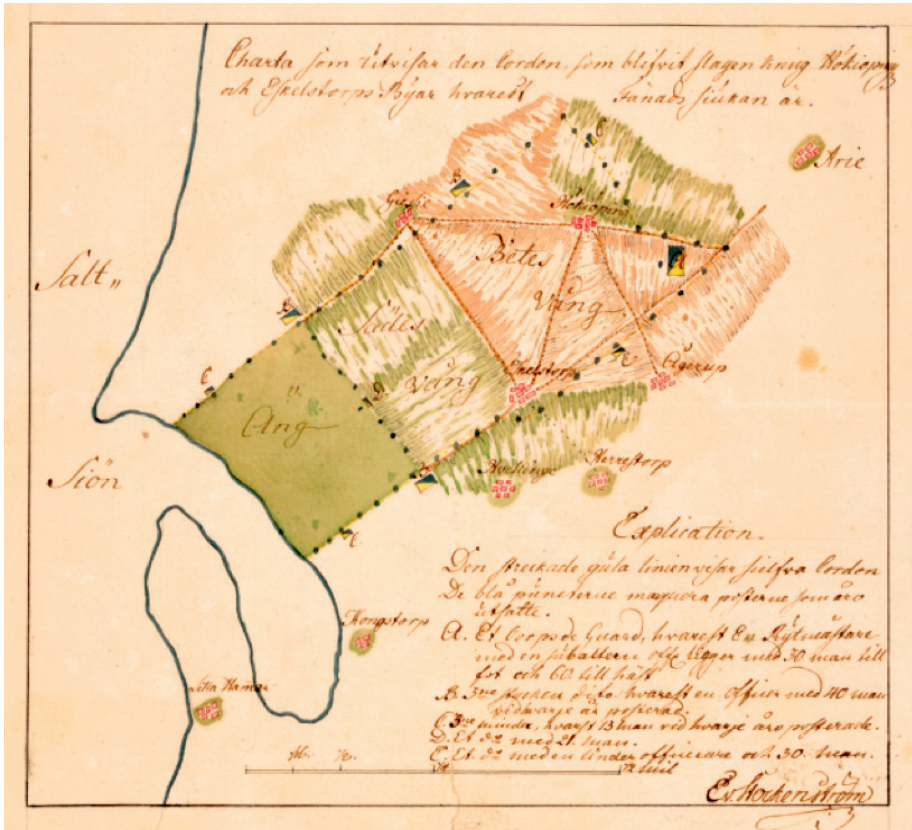 Charta som utvisar den Cordon, som blifvit slagen kring Hökioping
och Eskelstorps Byar hvarest Fänads siukan är.
Arie
Giessie
Hökioping
Salt„
Betes
Vång
Sädes
Vång
Eskelstorp
Ägerup
Äng
Siön
Herrestorp
Explication.
Den streckade gula linien visar sielfva Cordon
De blå puncterne marquera posterne som äro
utsatte.
Kongstorp
A. Et Corps de Guard, hvarest En Rytmästare
med en subaltern ligger med 70 man till
fot och 60 till häst
B. 3ne stycken dito hvarest en Officer med 40 man
vid hvarje är posterad.
Lilla Hamar
C. 3ne mindre, hvarest 13 man vid hvarje äro posterade.
D. Et do med 21. man.
E. Et do med en Under officerare och 30. man.
mil
E. v. Stockenström